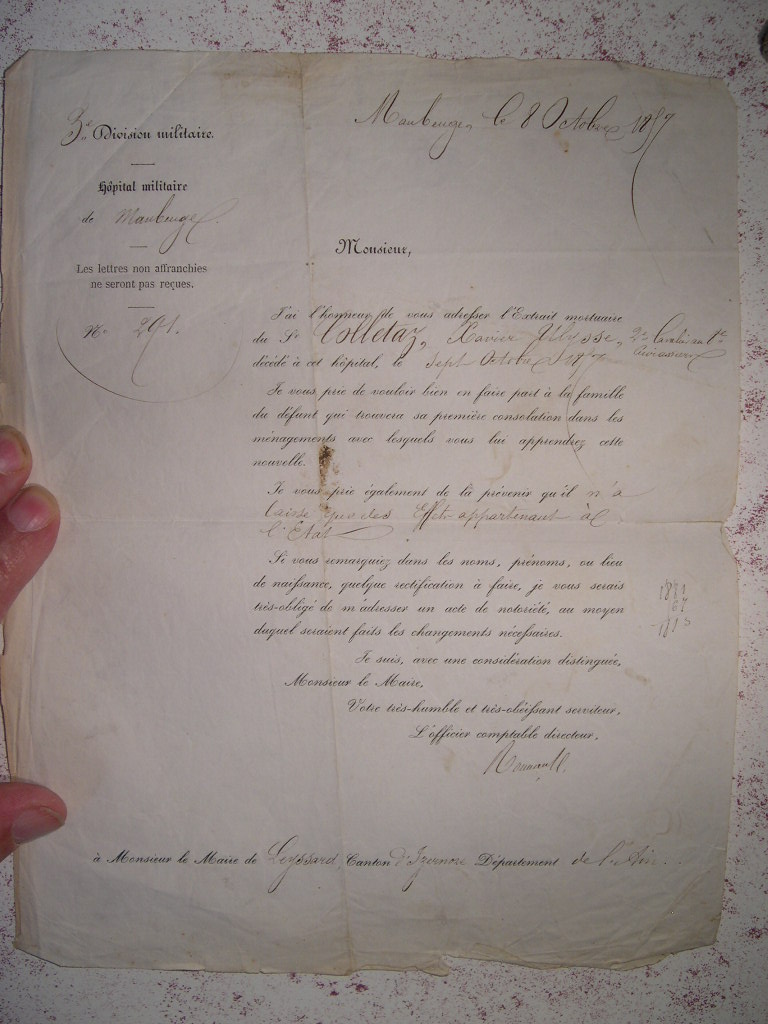 3e Division militaire.
Maubeuge, le 8 Octobre 1857
Hôpital militaire
de Maubeuge.
Les lettres non affranchies
ne seront pas reçues.
No 291.
Monsieur,
J'ai l'honneur de vous adresser l'Extrait mortuaire
du Sr Colletaz, Xavier Ulysse, 2e Cavalier au 1er
Cuirassiers
décédé à cet hôpital, le Sept Octobre 1857
Je vous prie de vouloir bien en faire part à la famille
du défunt qui trouvera sa première consolation dans les
ménagements avec lesquels vous lui apprendrez cette
nouvelle.
Je vous prie également de la prévenir qu'il n'a
laissé que des Effets appartenant à
l'État
Si vous remarquiez dans les noms, prénoms, ou lieu
de naissance, quelque rectification à faire, je vous serais
très-obligé de m'adresser un acte de notoriété, au moyen
duquel seraient faits les changements nécessaires.
Je suis, avec une considération distinguée,
Monsieur le Maire,
Votre très-humble et très-obéissant serviteur,
L'officier comptable directeur,
à Monsieur le Maire de Leyssard, Canton d'Izernore Département de l'Ain.